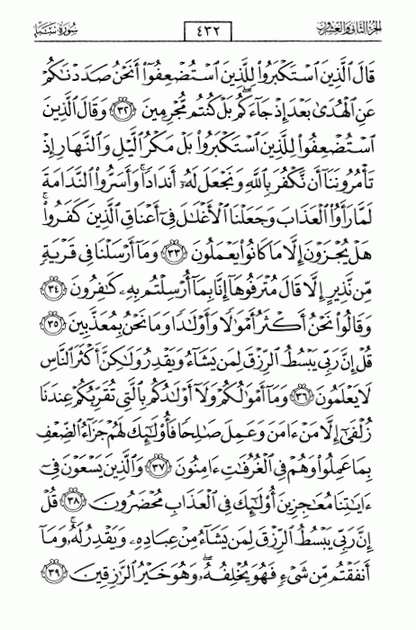 الجزء الثاني والعشرون ٤٣٢ سورة سبإ
قَالَ ٱلَّذِينَ ٱسۡتَكۡبَرُواْ لِلَّذِينَ ٱسۡتُضۡعِفُوٓاْ أَنَحۡنُ صَدَدۡنَٰكُمۡ
عَنِ ٱلۡهُدَىٰ بَعۡدَ إِذۡ جَآءَكُمۖ بَلۡ كُنتُم مُّجۡرِمِينَ ٣٢ وَقَالَ ٱلَّذِينَ
ٱسۡتُضۡعِفُواْ لِلَّذِينَ ٱسۡتَكۡبَرُواْ بَلۡ مَكۡرُ ٱلَّيۡلِ وَٱلنَّهَارِ إِذۡ
تَأۡمُرُونَنَآ أَن نَّكۡفُرَ بِٱللَّهِ وَنَجۡعَلَ لَهُۥٓ أَندَادٗاۚ وَأَسَرُّواْ ٱلنَّدَامَةَ
لَمَّا رَأَوُاْ ٱلۡعَذَابَۚ وَجَعَلۡنَا ٱلۡأَغۡلَٰلَ فِيٓ أَعۡنَاقِ ٱلَّذِينَ كَفَرُواْۖ
هَلۡ يُجۡزَوۡنَ إِلَّا مَا كَانُواْ يَعۡمَلُونَ ٣٣ وَمَآ أَرۡسَلۡنَا فِي قَرۡيَةٖ
مِّن نَّذِيرٍ إِلَّا قَالَ مُتۡرَفُوهَآ إِنَّا بِمَآ أُرۡسِلۡتُم بِهِۦ كَٰفِرُونَ ٣٤
وَقَالُواْ نَحۡنُ أَكۡثَرُ أَمۡوَٰلٗا وَأَوۡلَٰدٗا وَمَا نَحۡنُ بِمُعَذَّبِينَ ٣٥
قُلۡ إِنَّ رَبِّي يَبۡسُطُ ٱلرِّزۡقَ لِمَن يَشَآءُ وَيَقۡدِرُ وَلَٰكِنَّ أَكۡثَرَ ٱلنَّاسِ
لَا يَعۡلَمُونَ ٣٦ وَمَآ أَمۡوَٰلُكُمۡ وَلَآ أَوۡلَٰدُكُم بِٱلَّتِي تُقَرِّبُكُمۡ عِندَنَا
زُلۡفَىٰٓ إِلَّا مَنۡ ءَامَنَ وَعَمِلَ صَٰلِحٗا فَأُوْلَٰٓئِكَ لَهُمۡ جَزَآءُ ٱلضِّعۡفِ
بِمَا عَمِلُواْ وَهُمۡ فِي ٱلۡغُرُفَٰتِ ءَامِنُونَ ٣٧ وَٱلَّذِينَ يَسۡعَوۡنَ فِيٓ
ءَايَٰتِنَا مُعَٰجِزِينَ أُوْلَٰٓئِكَ فِي ٱلۡعَذَابِ مُحۡضَرُونَ ٣٨ قُلۡ
إِنَّ رَبِّي يَبۡسُطُ ٱلرِّزۡقَ لِمَن يَشَآءُ مِنۡ عِبَادِهِۦ وَيَقۡدِرُ لَهُۥۚ وَمَآ
أَنفَقۡتُم مِّن شَيۡءٖ فَهُوَ يُخۡلِفُهُۥۖ وَهُوَ خَيۡرُ ٱلرَّٰزِقِينَ ٣٩